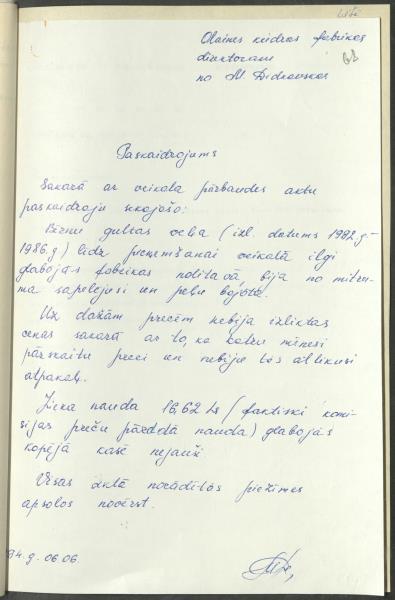 Olaines kūdras fabrikas
direktoram
no M. Didkovskas
Paskaidrojums
Sakarā ar veikala pārbaudes aktu
paskaidroju sekojošo:
Bērnu gultas veļa (izl. datums 1982.g-
1986.g) līdz pieņemšanai veikalā ilgi
glabājās fabrikas noliktavā, bija no mitru-
ma sapelējusi un peļu bojāta.
Uz dažām precēm nebija izliktas
cenas sakarā ar to, ka katru mēnesi
pārskaitu preci un nebiju tās atlikusi
atpakaļ.
Lieka nauda 16,62 Ls (faktiski komi-
sijas preču pārdotā nauda) glabājās
kopējā kasē nejauši
Visas aktā norādītās piezīmes
apsolos novērst.
94.g. 06.06.